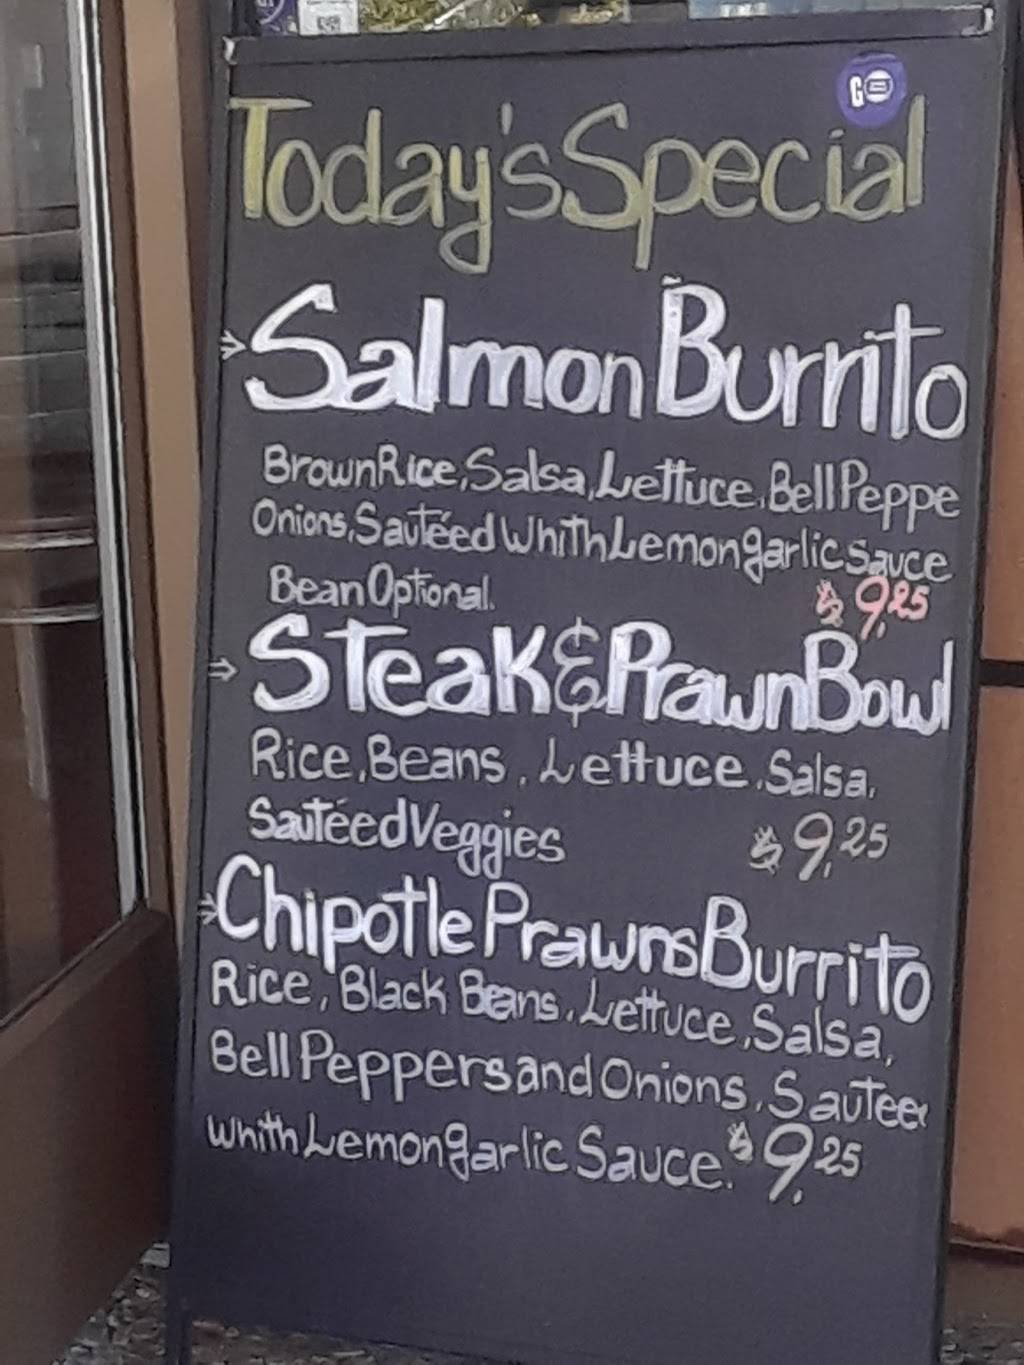 GO
Today's Special
Salmon Burrito
Brown Rice, Salsa, Lettuce, Bell Peppe
Onions, Sautéed Whith Lemon garlic sauce
Bean Optional.
$9.25
Steak & Prawn Bowl
Rice, Beans, Lettuce, Salsa,
Sautéed Veggies $9.25
Chipotle Prawns Burrito
Rice, Black Beans, Lettuce, Salsa,
Bell Peppers and Onions, Sauteed
whith Lemon garlic Sauce. $9.25